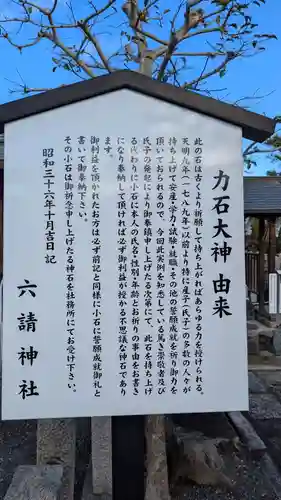 力石大神 由来
此の石は古くより祈願して持ち上がればあらゆる力を授けられる。
天明九年(一七八九年)以前より特に産子(氏子)の多数の人々が
持ち上げて安産・学力・試験・就職・その他の誓願成就を祈り御力を
頂いておられるので、今回此実例を知悉している篤き崇敬者及び
氏子の発起により御奉鎮申し上げたる次第にて、此石を持ち上げ
る代わりに小石に本人の氏名・性別・年齢とお祈りの事由をお書き
になり奉納して頂ければ必ず御利益が授かる不思議な神石であり
ます。
御利益を頂かれたお方は必ず前記と同様に小石に誓願成就御礼と
書いて御奉納下さいませ。
その小石は御祈念申し上げたる神石を社務所にてお受け下さい。
昭和三十六年十月吉日記
六請神社